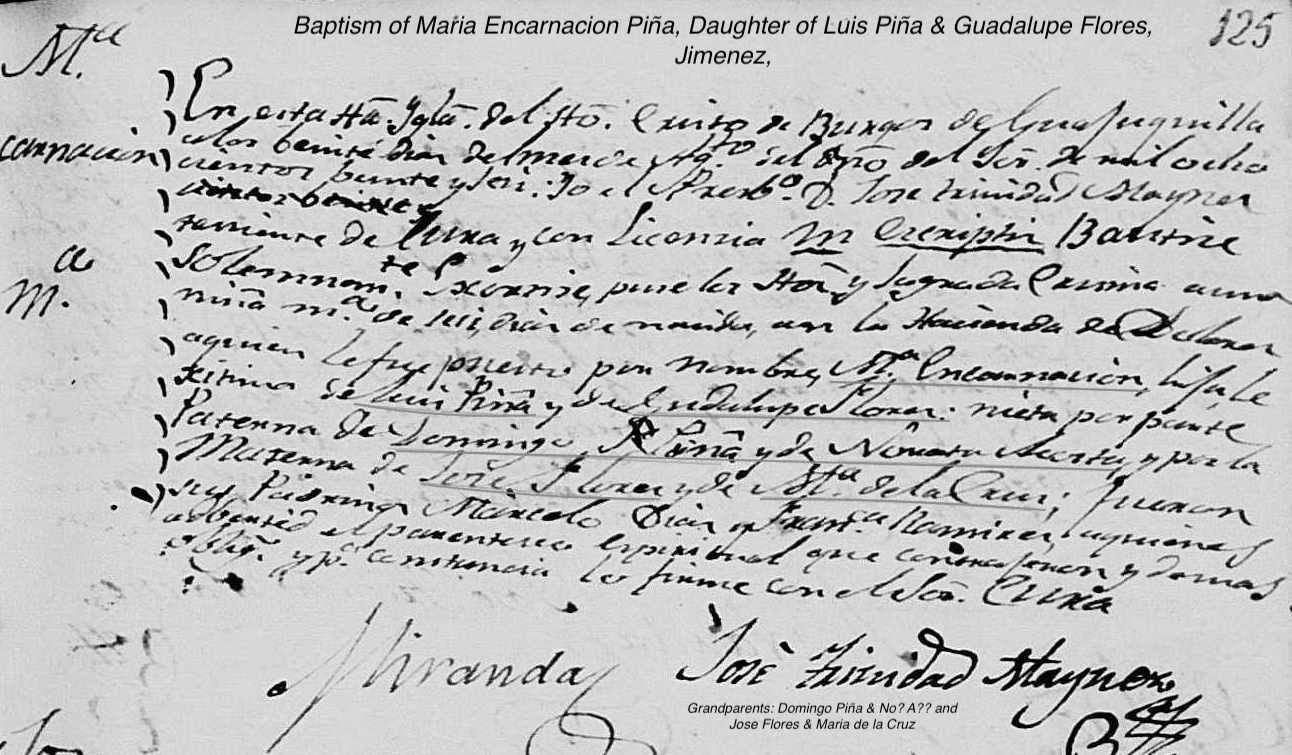 Baptism of Maria Encarnacion Piña, Daughter of Luis Piña & Guadalupe Flores,
Jimenez,
125
M.a
carnacion
a
m.
En esta Sta. Ygla. del Sto. Cristo de Burgos de Guajuquilla
a los beinte dias del mes de Agto. del año del Sor. de mil ocho
cientos beinte y seis: Yo el Presbo. D. Jose trinidad Mayner
teniente de Cura y con Licencia in Bautise
solemnemte. Exorsise, puse los Stos. y Sagrada Crisma a una
niña de seis dias de nacida, en la Hacienda de Dolores
a quien le fue puesto por nombre, Ma. Encarnacion, hija le
xitima de Luis Piña y de Gudalupe Flores: nieta por parte
Paterna de Domingo Piña y de y por la
Materna de Jose Flores y de Ma. de la Cruz; fueron
sus Padrinos Marcelo Dias y Franca. Ramires, a quienes
adberti el parentesco espiritual que contrageron y demas
oblign. y pa. constancia lo firme con el Sor. Cura
Miranda
José trinidad Mayner
Grandparents: Domingo Piña & No? A?? and
Jose Flores & Maria de la Cruz